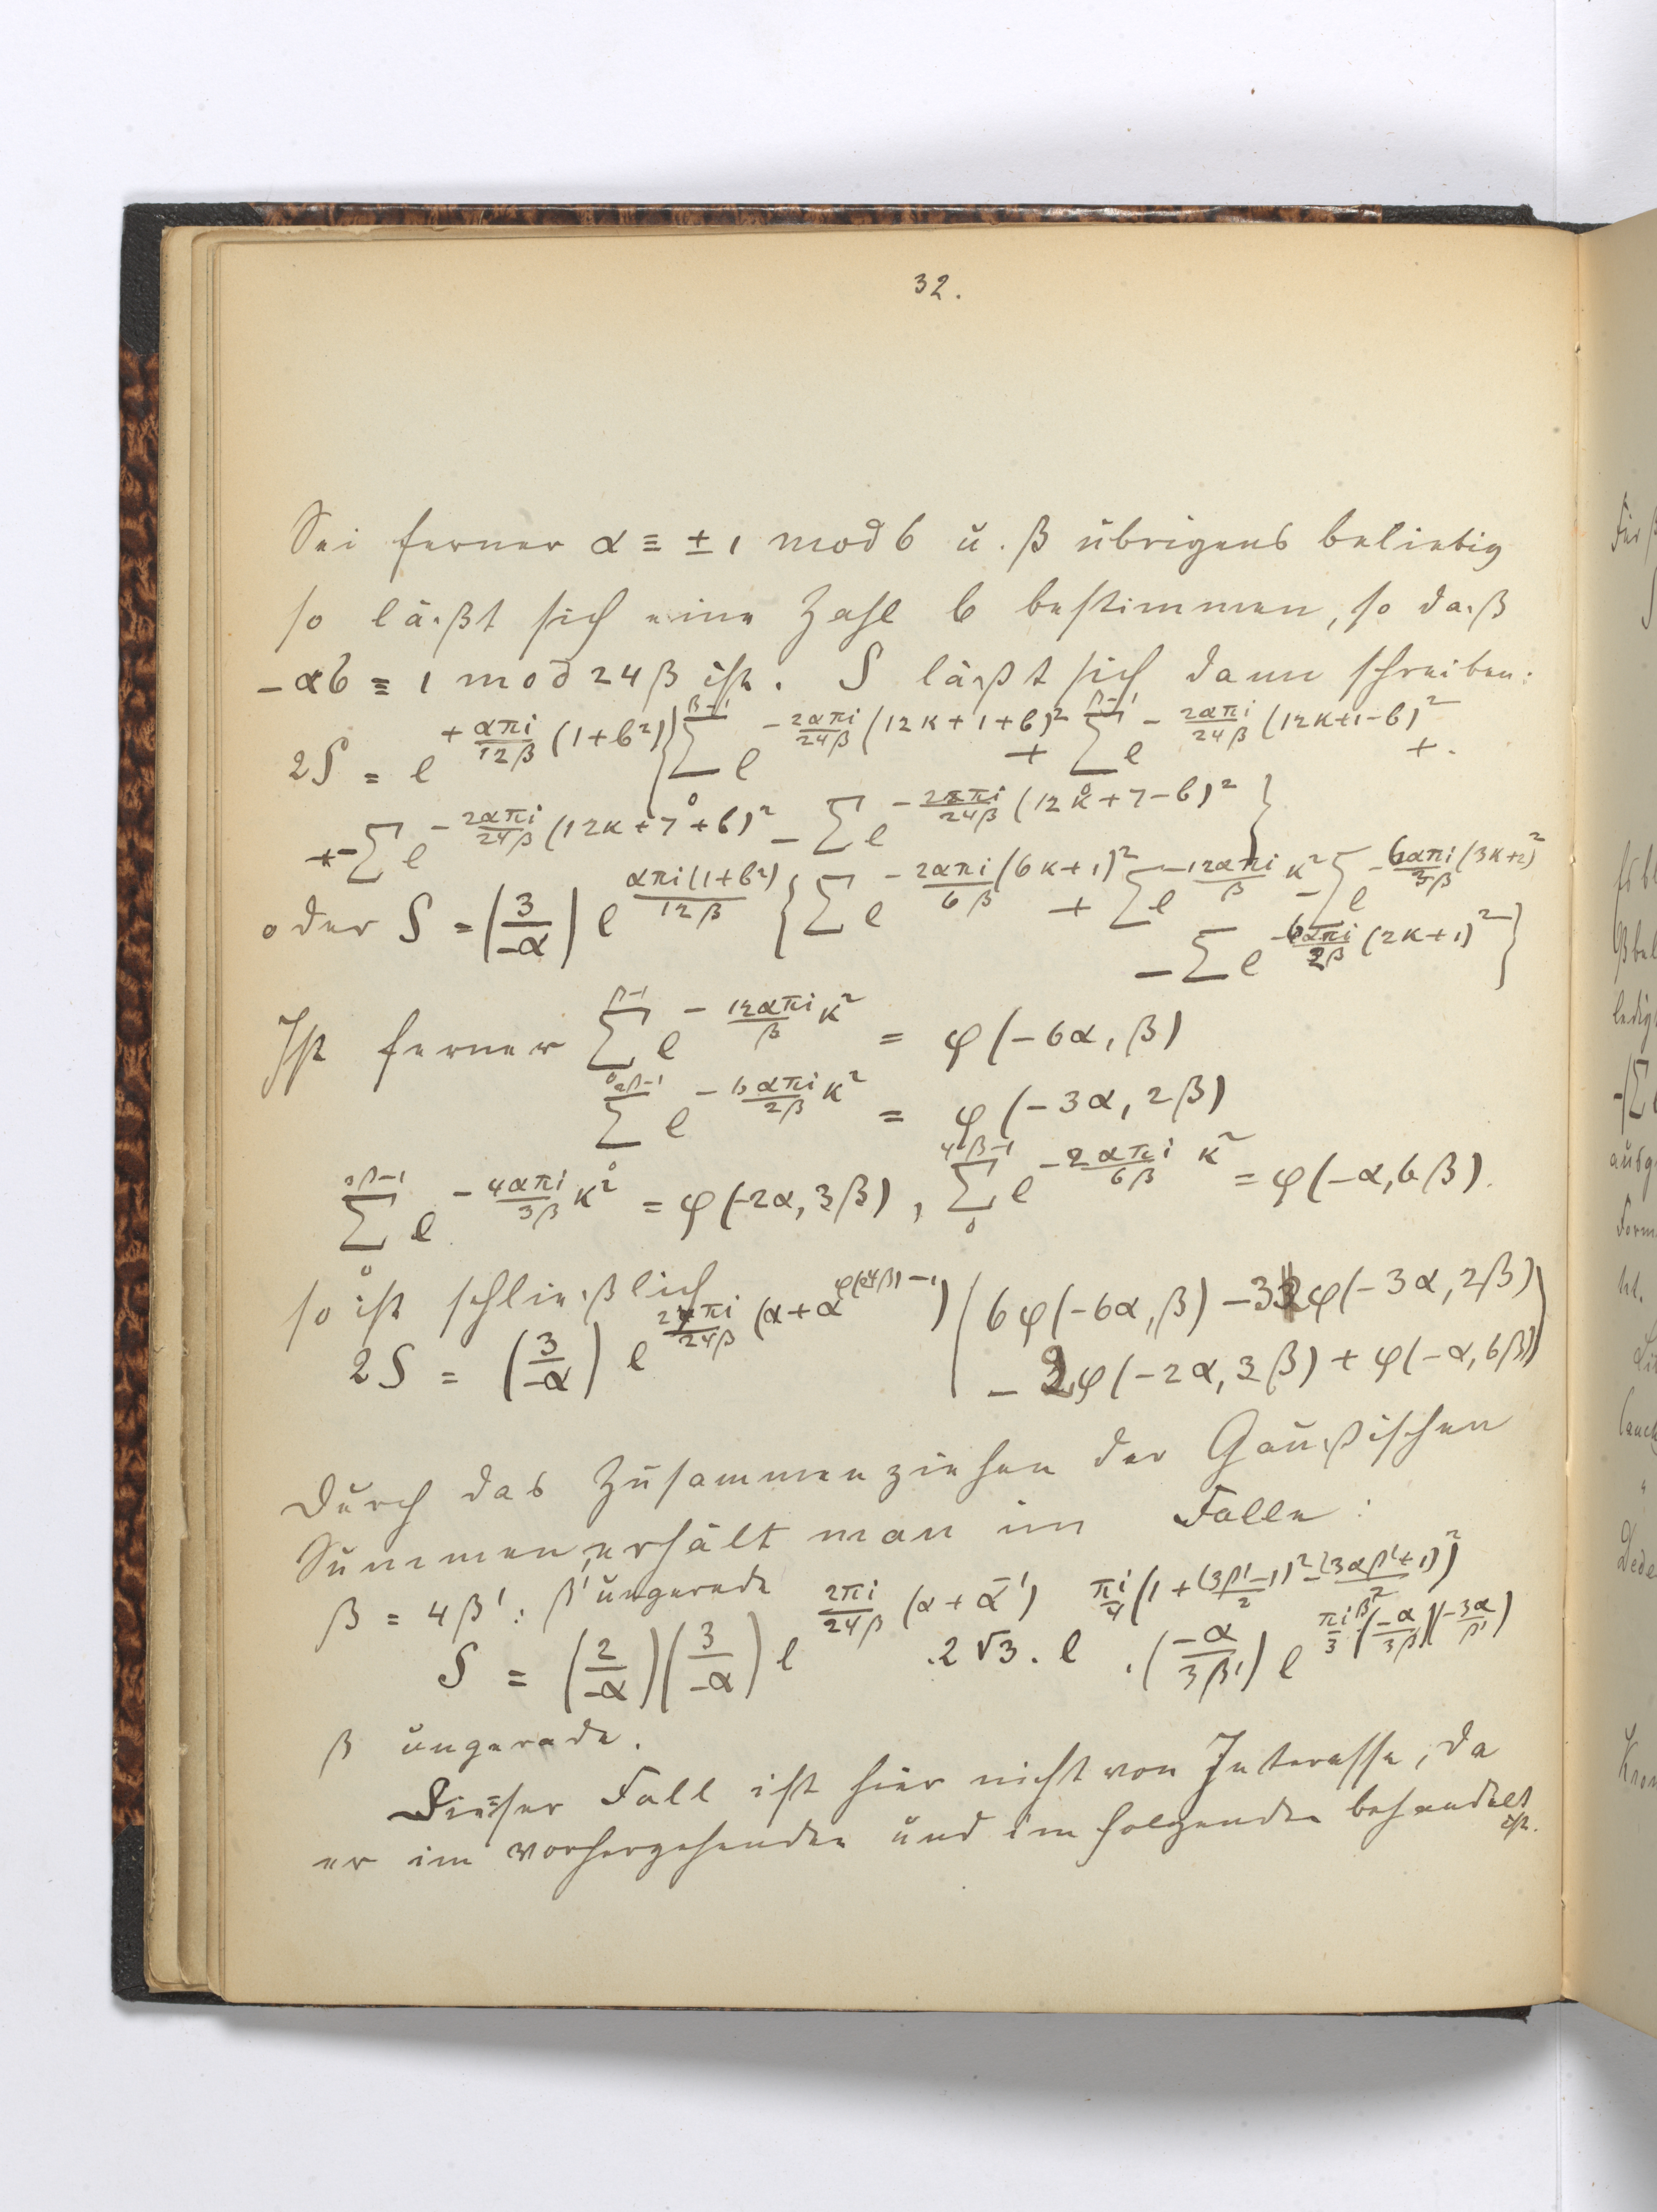 32.
Sei ferner α ≡ ± 1 mod 6 u. β übrigens beliebig
so läßt sich eine Zahl b bestimmen, so daß
- αb ≡ 1 mod 24β ist. S läßt sich dann schreiben:
2S = e^{+\frac{απi}{12β}(1+b²)} { \sum_0^{β-1} e^{-\frac{2απi}{24β}(12κ+1+b)²} + \sum_0^{β-1} e^{-\frac{2απi}{24β}(12κ+1-b)²} +.
- \sum e^{-\frac{2απi}{24β}(12κ+7+b)²} - \sum e^{-\frac{2απi}{24β}(12κ+7-b)²} }
oder S = (\frac{3}{-α}) e^{\frac{απi(1+b²)}{12β}} { \sum e^{-\frac{2απi}{6β}(6κ+1)²} + \sum e^{-\frac{12απi}{β}κ²} - \sum e^{-\frac{6απi}{3β}(3κ+2)²}
- \sum e^{-\frac{6απi}{2β}(2κ+1)²} }
Ist ferner \sum_0^{β-1} e^{-\frac{12απi}{β}κ²} = φ(-6α, β)
\sum_0^{2β-1} e^{-\frac{6απi}{2β}κ²} = φ(-3α, 2β)
\sum_0^{3β-1} e^{-\frac{4απi}{3β}κ²} = φ(-2α, 3β), \sum_0^{4β-1} e^{-\frac{2απi}{6β}κ²} = φ(-α, 6β).
so ist schließlich
2S = (\frac{3}{-α}) e^{\frac{2πi}{24β}(α+α^{φ(24β)-1})} (6φ(-6α, β) - 3φ(-3α, 2β)
- 2φ(-2α, 3β) + φ(-α, 6β))
Durch das Zusammenziehen der Gaußischen
Summen, erhält man im Falle:
β = 4β': β' ungerade
S = (\frac{2}{-α})(\frac{3}{-α}) e^{\frac{2πi}{24β}(α+α^{-1})} . 2√3 . e^{\frac{πi}{4}(1+\frac{(3β'-1)²-(3αβ'+1)²}{2})} . (\frac{-α}{3β'}) e^{\frac{πi}{3}β²(\frac{-α}{3β})(\frac{-3α}{β'})}
β ungerade.
Dieser Fall ist hier nicht von Interesse, da
er im vorhergehenden und im folgenden behandelt
ist.